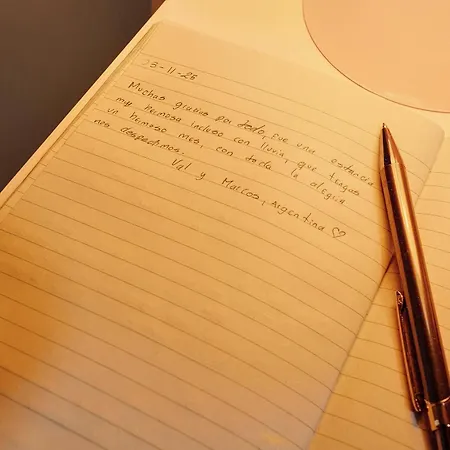 23-11-25
Muchas gracias por todo, Fue una estancia
muy hermosa incluso con lluvia, que tengas
un hermoso mes, con toda la alegria
nos despedimos.
Val y Marcos, Argentina ♡